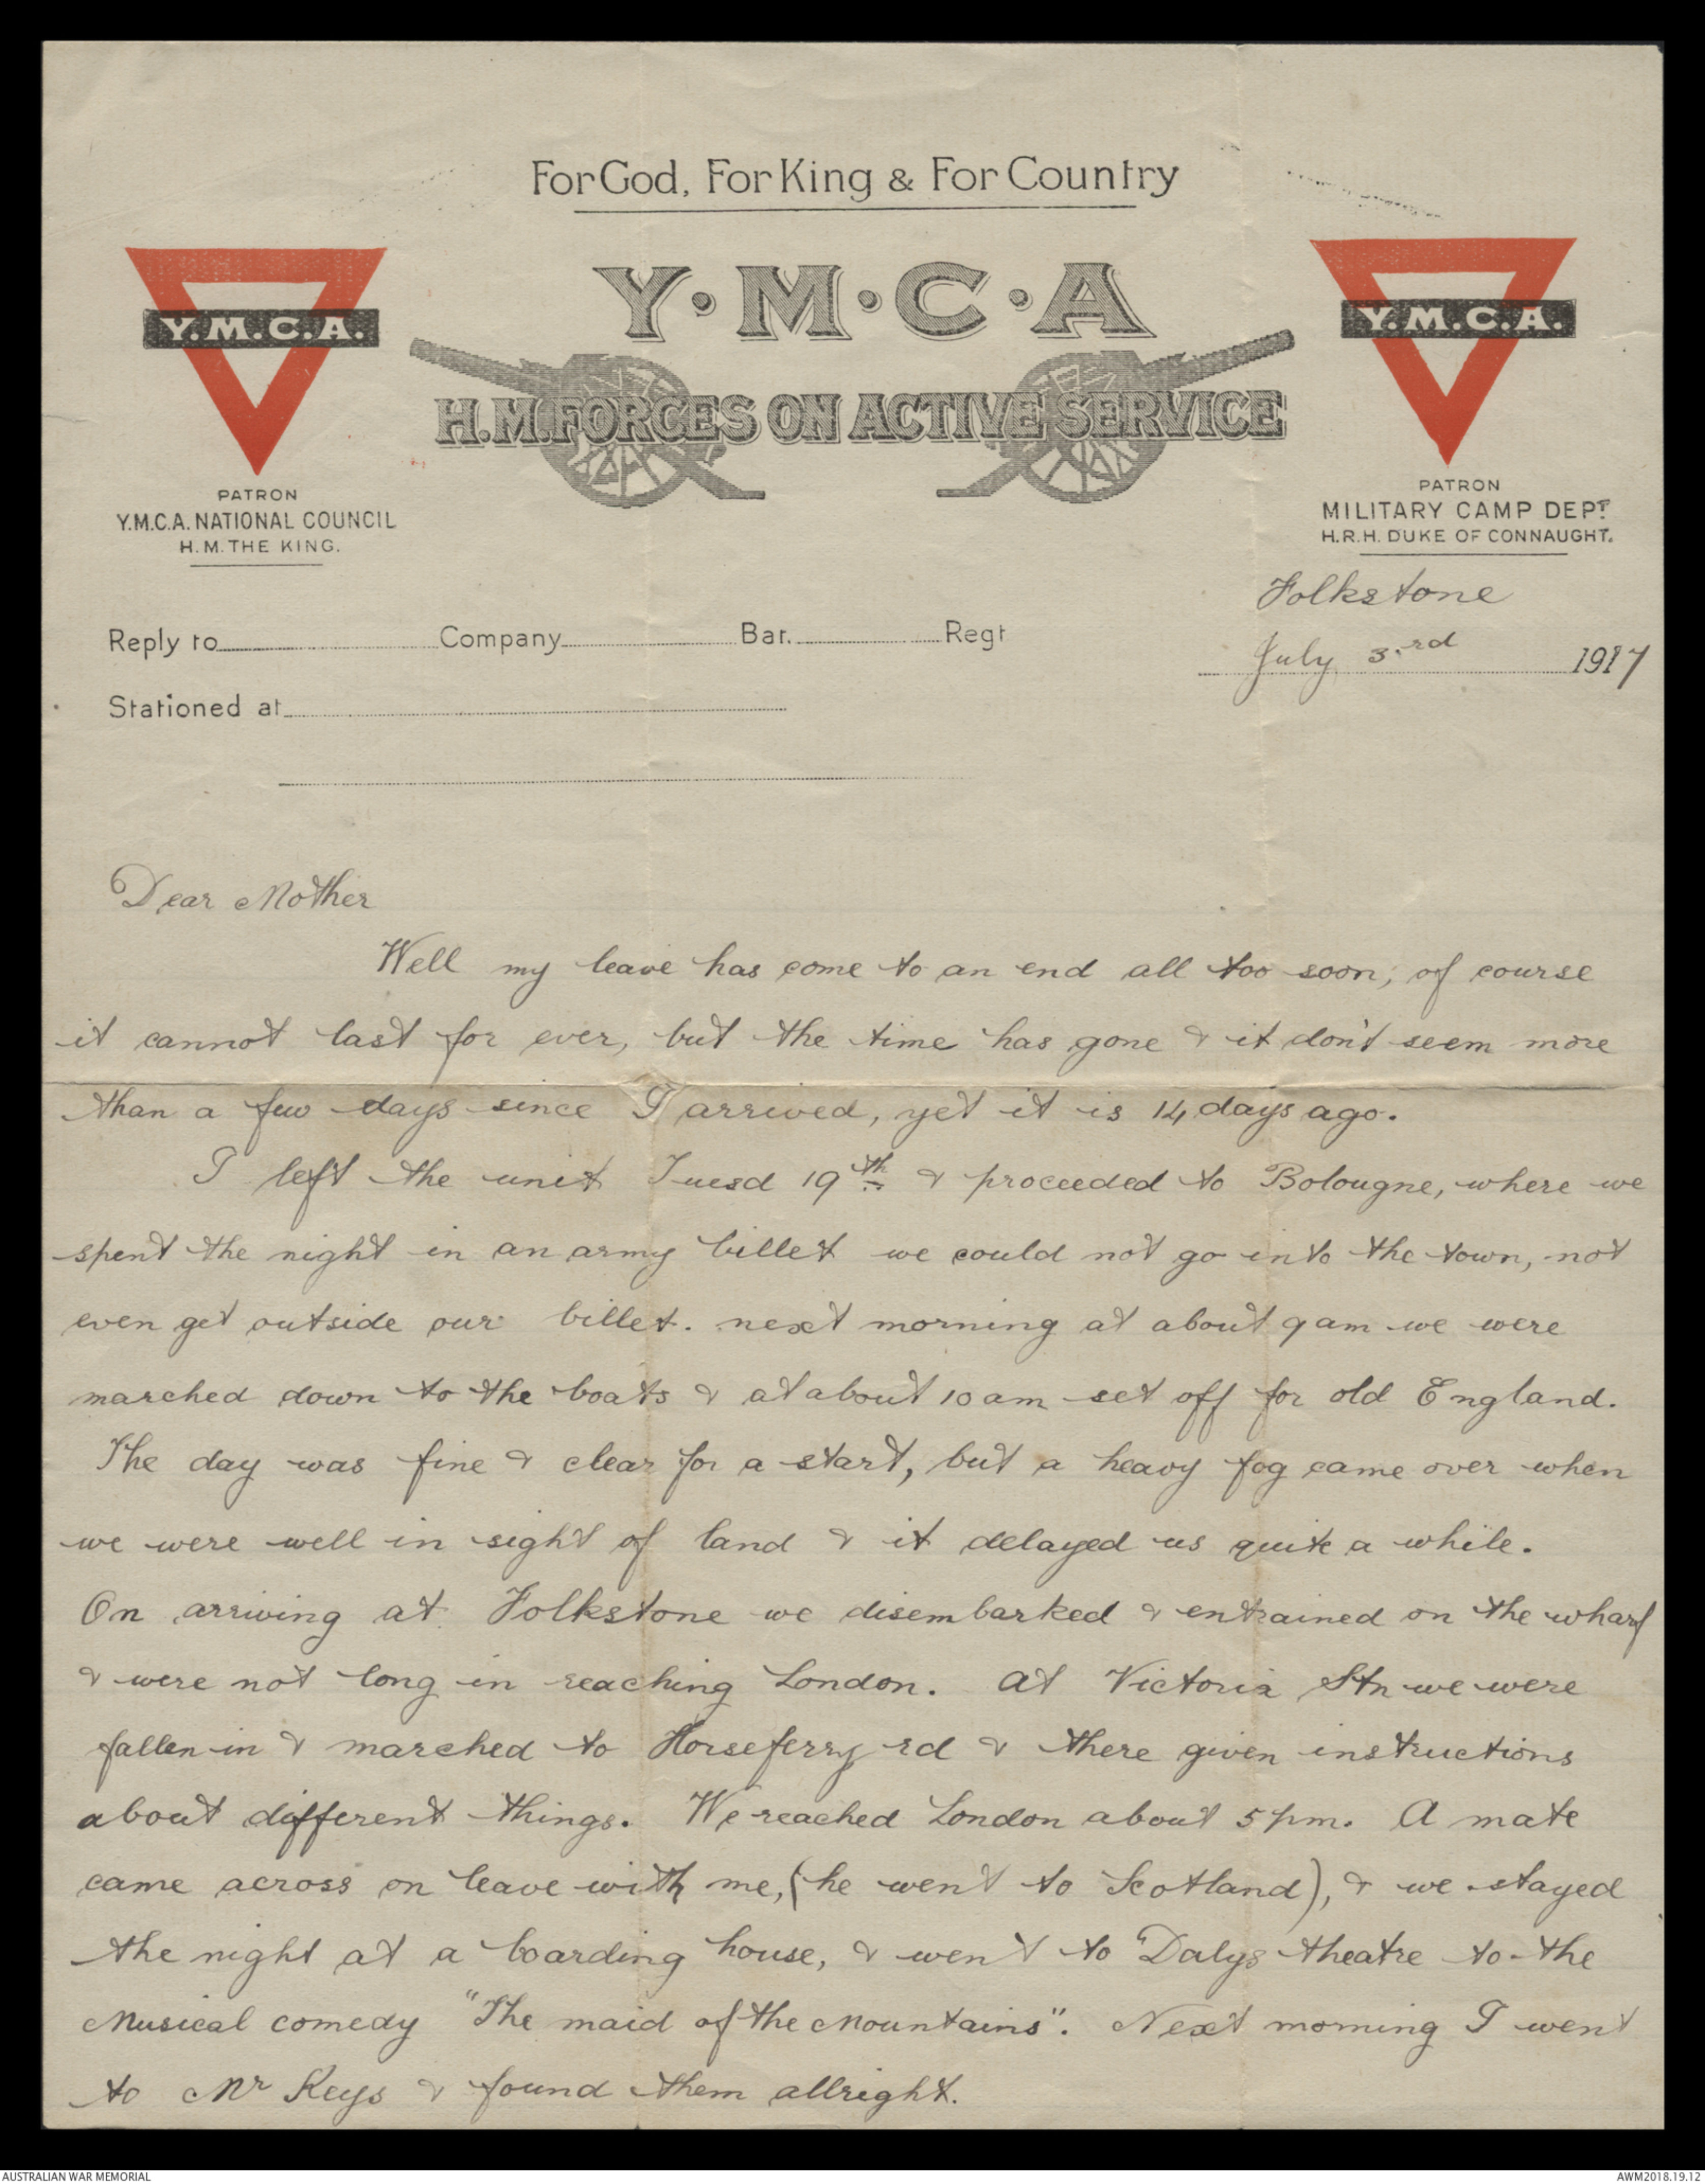 For God, For King & For Country
Y·M·C·A
Y.M.C.A.
Y.M.C.A.
H.M. FORCES ON ACTIVE SERVICE
PATRON
Y.M.C.A. NATIONAL COUNCIL
H.M. THE KING.
PATRON
MILITARY CAMP DEPT
H.R.H. DUKE OF CONNAUGHT.
Folkstone
Reply to Company Bat. Regt
July 3rd 1917
Stationed at
Dear Mother
Well my leave has come to an end all too soon, of course
it cannot last for ever, but the time has gone & it don't seem more
than a few days since I arrived, yet it is 14 days ago.
I left the unit Tuesd 19th & proceeded to Bolougne, where we
spent the night in an army billet we could not go into the town, not
even get outside our billet. next morning at about 9 am we were
marched down to the boats & at about 10 am set off for old England.
The day was fine & clear for a start, but a heavy fog came over when
we were well in sight of land & it delayed us quite a while.
On arriving at Folkstone we disembarked & entrained on the wharf
& were not long in reaching London. At Victoria Stn we were
fallen in & marched to Horseferry rd & there given instructions
about different things. We reached London about 5 pm. A mate
came across on leave with me, (he went to Scotland), & we stayed
the night at a boarding house, & went to Dalys theatre to the
Musical comedy "The maid of the Mountains". Next morning I went
to Mr Keys & found them allright.
AUSTRALIAN WAR MEMORIAL
AWM2018.19.12